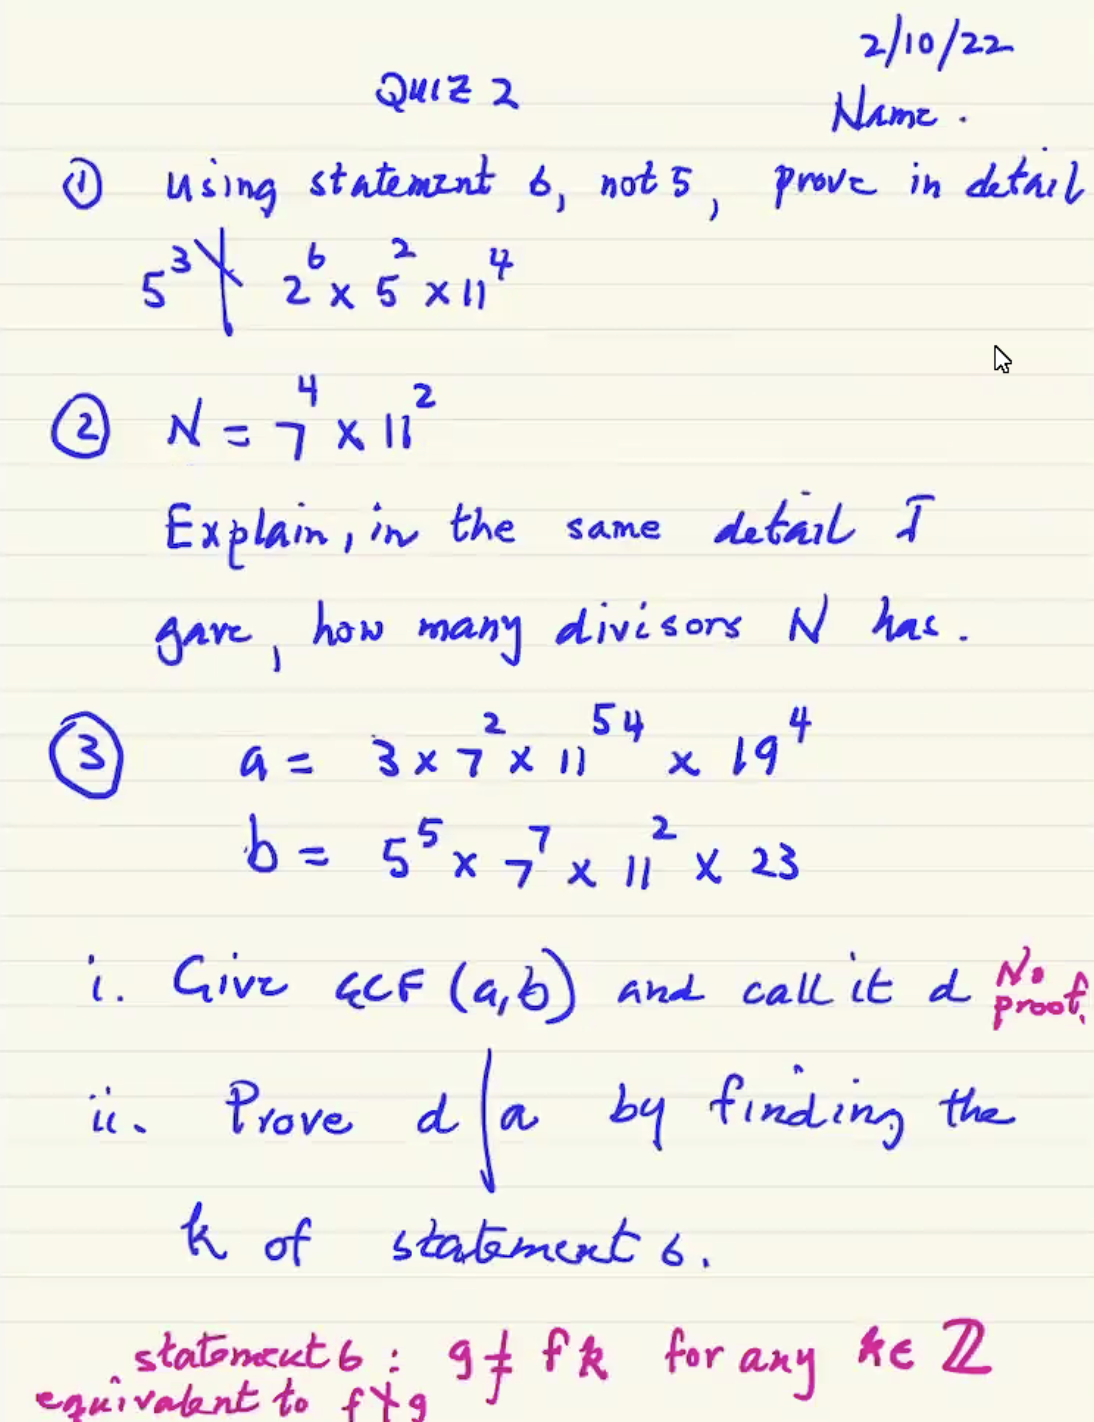 2/10/22
QUIZ 2
Name.
① using statement 6, not 5, prove in detail
5³ ∤ 2⁶ × 5² × 11⁴
② N = 7⁴ × 11²
Explain, in the same detail I
gave, how many divisors N has.
③ a = 3 × 7² × 11⁵⁴ × 19⁴
b = 5⁵ × 7⁷ × 11² × 23
i. Give GCF (a,b) and call it d No proof.
ii. Prove d | a by finding the
k of statement 6.
statement 6 : g ≠ f k for any k ∈ ℤ
equivalent to f ∤ g